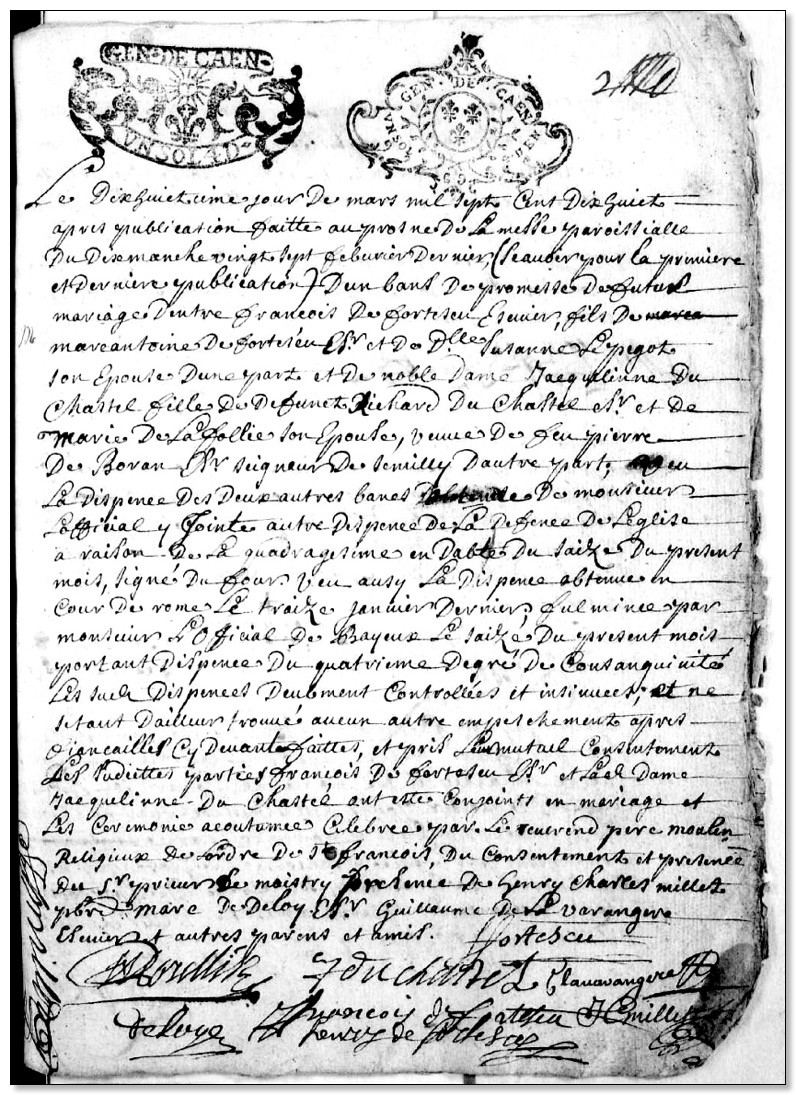 GEN. DE CAEN
UN SOL AD
GEN. DE CAEN
UN SOL
2
Le Dixhuictieme jour De mars mil sept Cent Dixhuict
apres publication faitte au prosne De La messe paroissialle
Du Dixmanche vingt sept feburier Dernier, (Scauoir pour la premiere
et Derniere publication) D'un bans De promesse De futur
mariage Dentre francois De fortescu Escuier, fils De
marcantoine De fortescu Esr. et De Dlle Susanne Le pegot
son Epouse Dune part et De noble Dame Jacquelinne Du
Chastel fille De Deffunct Richard Du Chastel esr. et de
Marie De La follie son Epouse, veuve De feu pierre
De Boran Esr seigneur De Semilly Dautre part, veu
La Dispence Des Deux autres bancs De monsieur
Lofficial y Jointe autre Dispence De La Deffence De Leglise
a raison De La quadragesime en Datte Du saize Du present
mois, signé Du four. Veu ausy La Dispence obtenue en
Cour De rome Le traize janvier Dernier, fulminee par
monsieur L'Official De Bayeux Le saize Du present mois
portant Dispence Du quatrieme Degré De Consanguinité
Les Dispences Deubment Controllées et insinuees, et ne
sétant D'ailleur trouvé aucun autre empeschement apres
fiancailles Cy Devant faittes, et pris Leur mutuel Consentement
Les Sudittes parties francois De fortescu Esr et Lad Dame
Jacquelinne Du Chastel ont esté Conjoints en mariage et
Les Ceremonie acoutumee Celebree par Le reverend pere moulin
Religieux de Lordre De St francois, Du Consentement et presence
du Sr prieur De moistry presence De Henry Charles millet
pbre. marc De Deloy Esr Guillaume De La Varangere
Escuier et autres parens et amis. fortescu
J du Chastel Clavarangere
Deloye francois de fortescu
henry de fortescu